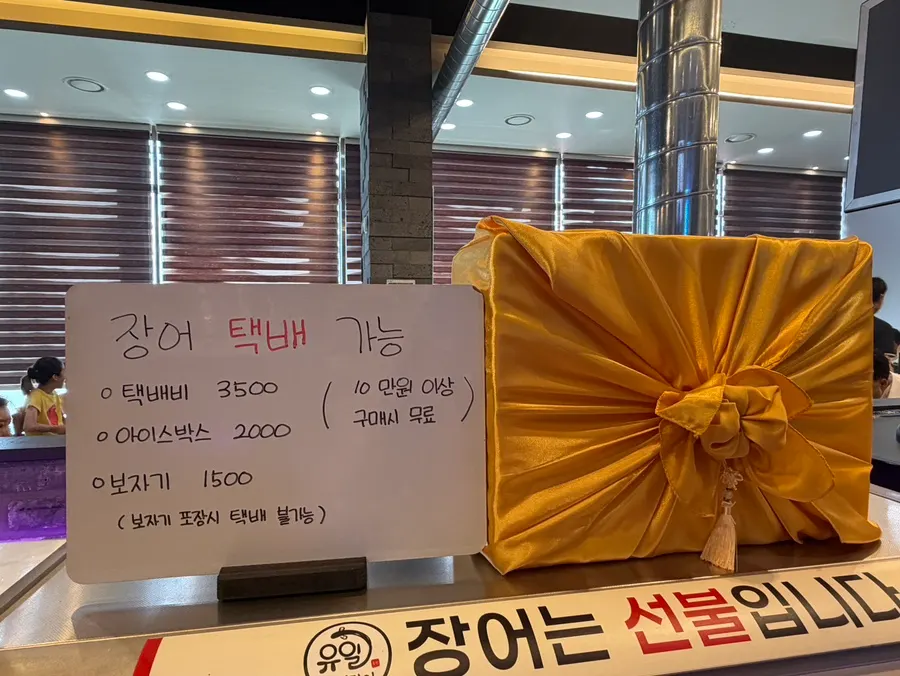 장어 택배 가능
○ 택배비 3500
( 10 만원 이상
구매시 무료 )
○ 아이스박스 2000
○ 보자기 1500
( 보자기 포장시 택배 불가능 )
유일
장어는 선불입니다